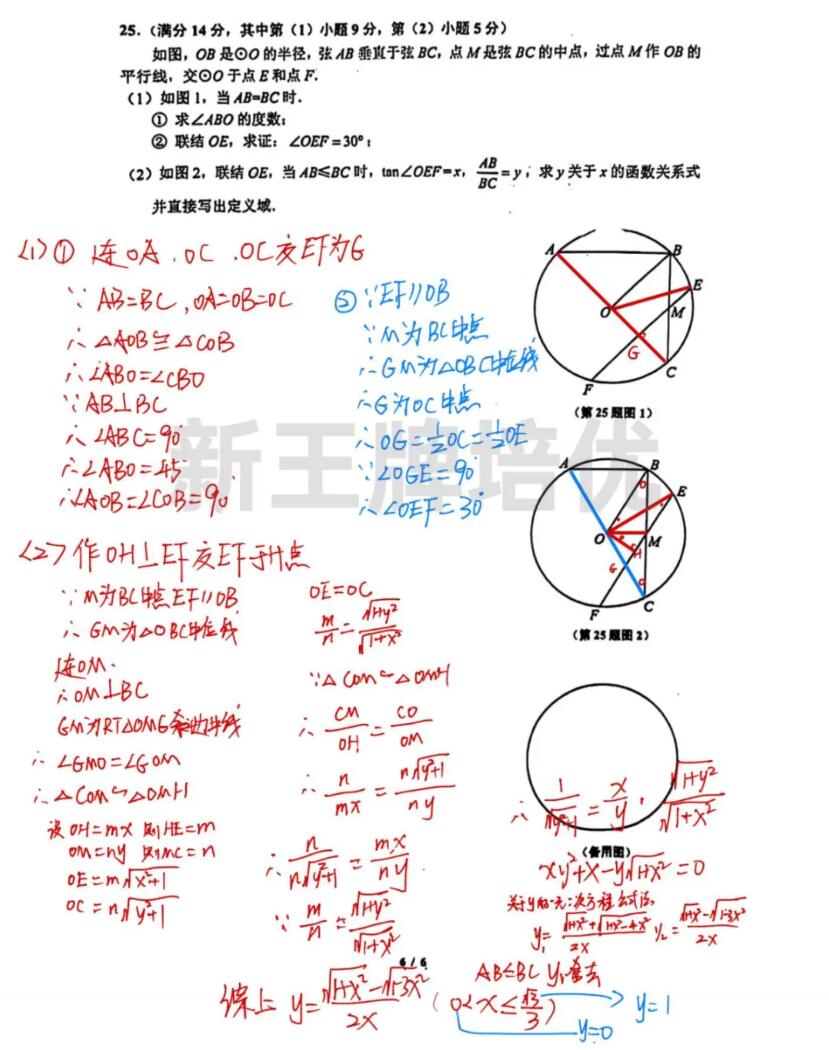 25.（满分14分，其中第（1）小题9分，第（2）小题5分）
如图，OB是⊙O的半径，弦AB垂直于弦BC，点M是弦BC的中点，过点M作OB的
平行线，交⊙O于点E和点F.
（1）如图1，当AB=BC时.
① 求∠ABO的度数；
② 联结OE，求证：∠OEF=30°；
（2）如图2，联结OE，当AB≤BC时，tan∠OEF=x，AB/BC=y，求y关于x的函数关系式
并直接写出定义域.
<1>① 连OA、OC、OC交EF为G
∵ AB=BC，OA=OB=OC
∴ △AOB≌△COB
∴ ∠ABO=∠CBO
∵ AB⊥BC
∴ ∠ABC=90°
∴ ∠ABO=45°
∴ ∠AOB=∠COB=90°
② ∵EF∥OB
∵M为BC中点
∴GM为△OBC中位线
∴G为OC中点
∴OG=½OC=½OE
∵∠OGE=90°
∴∠OEF=30°
A
B
E
O
M
G
C
F
（第25题图1）
A
B
E
O
M
H
G
F
C
（第25题图2）
（备用图）
新王牌培优
<2>作OH⊥EF交EF于H点
∵M为BC中点EF∥OB
∴GM为△OBC中位线
连OM.
∴OM⊥BC
GM为RT△OMG
∴∠GMO=∠GOM
∴△COM∽△OMH
设OH=mx 则HE=m
OM=ny 则MC=n
OE=m√(x²+1)
OC=n√(y²+1)
OE=OC
m/n=√(1+y²)/√(1+x²)
∵△COM∽△OMH
∴ CM/OH=CO/OM
∴ n/mx=n√(y²+1)/ny
∴ n/n√(y²+1)=mx/ny
∵ m/n=√(1+y²)/√(1+x²)
∴ 1/√(y²+1)=x/y·√(1+y²)/√(1+x²)
xy²+x-y√(1+x²)=0
关于y的一元二次方程公式法
y₁=√(1+x²)+√(1+x²-4x²)/2x y₂=√(1+x²)-√(1-3x²)/2x
6 / 6
AB≤BC y₁舍去
综上 y=√(1+x²)-√(1-3x²)/2x (0<x≤√3/3)
y=1
y=0